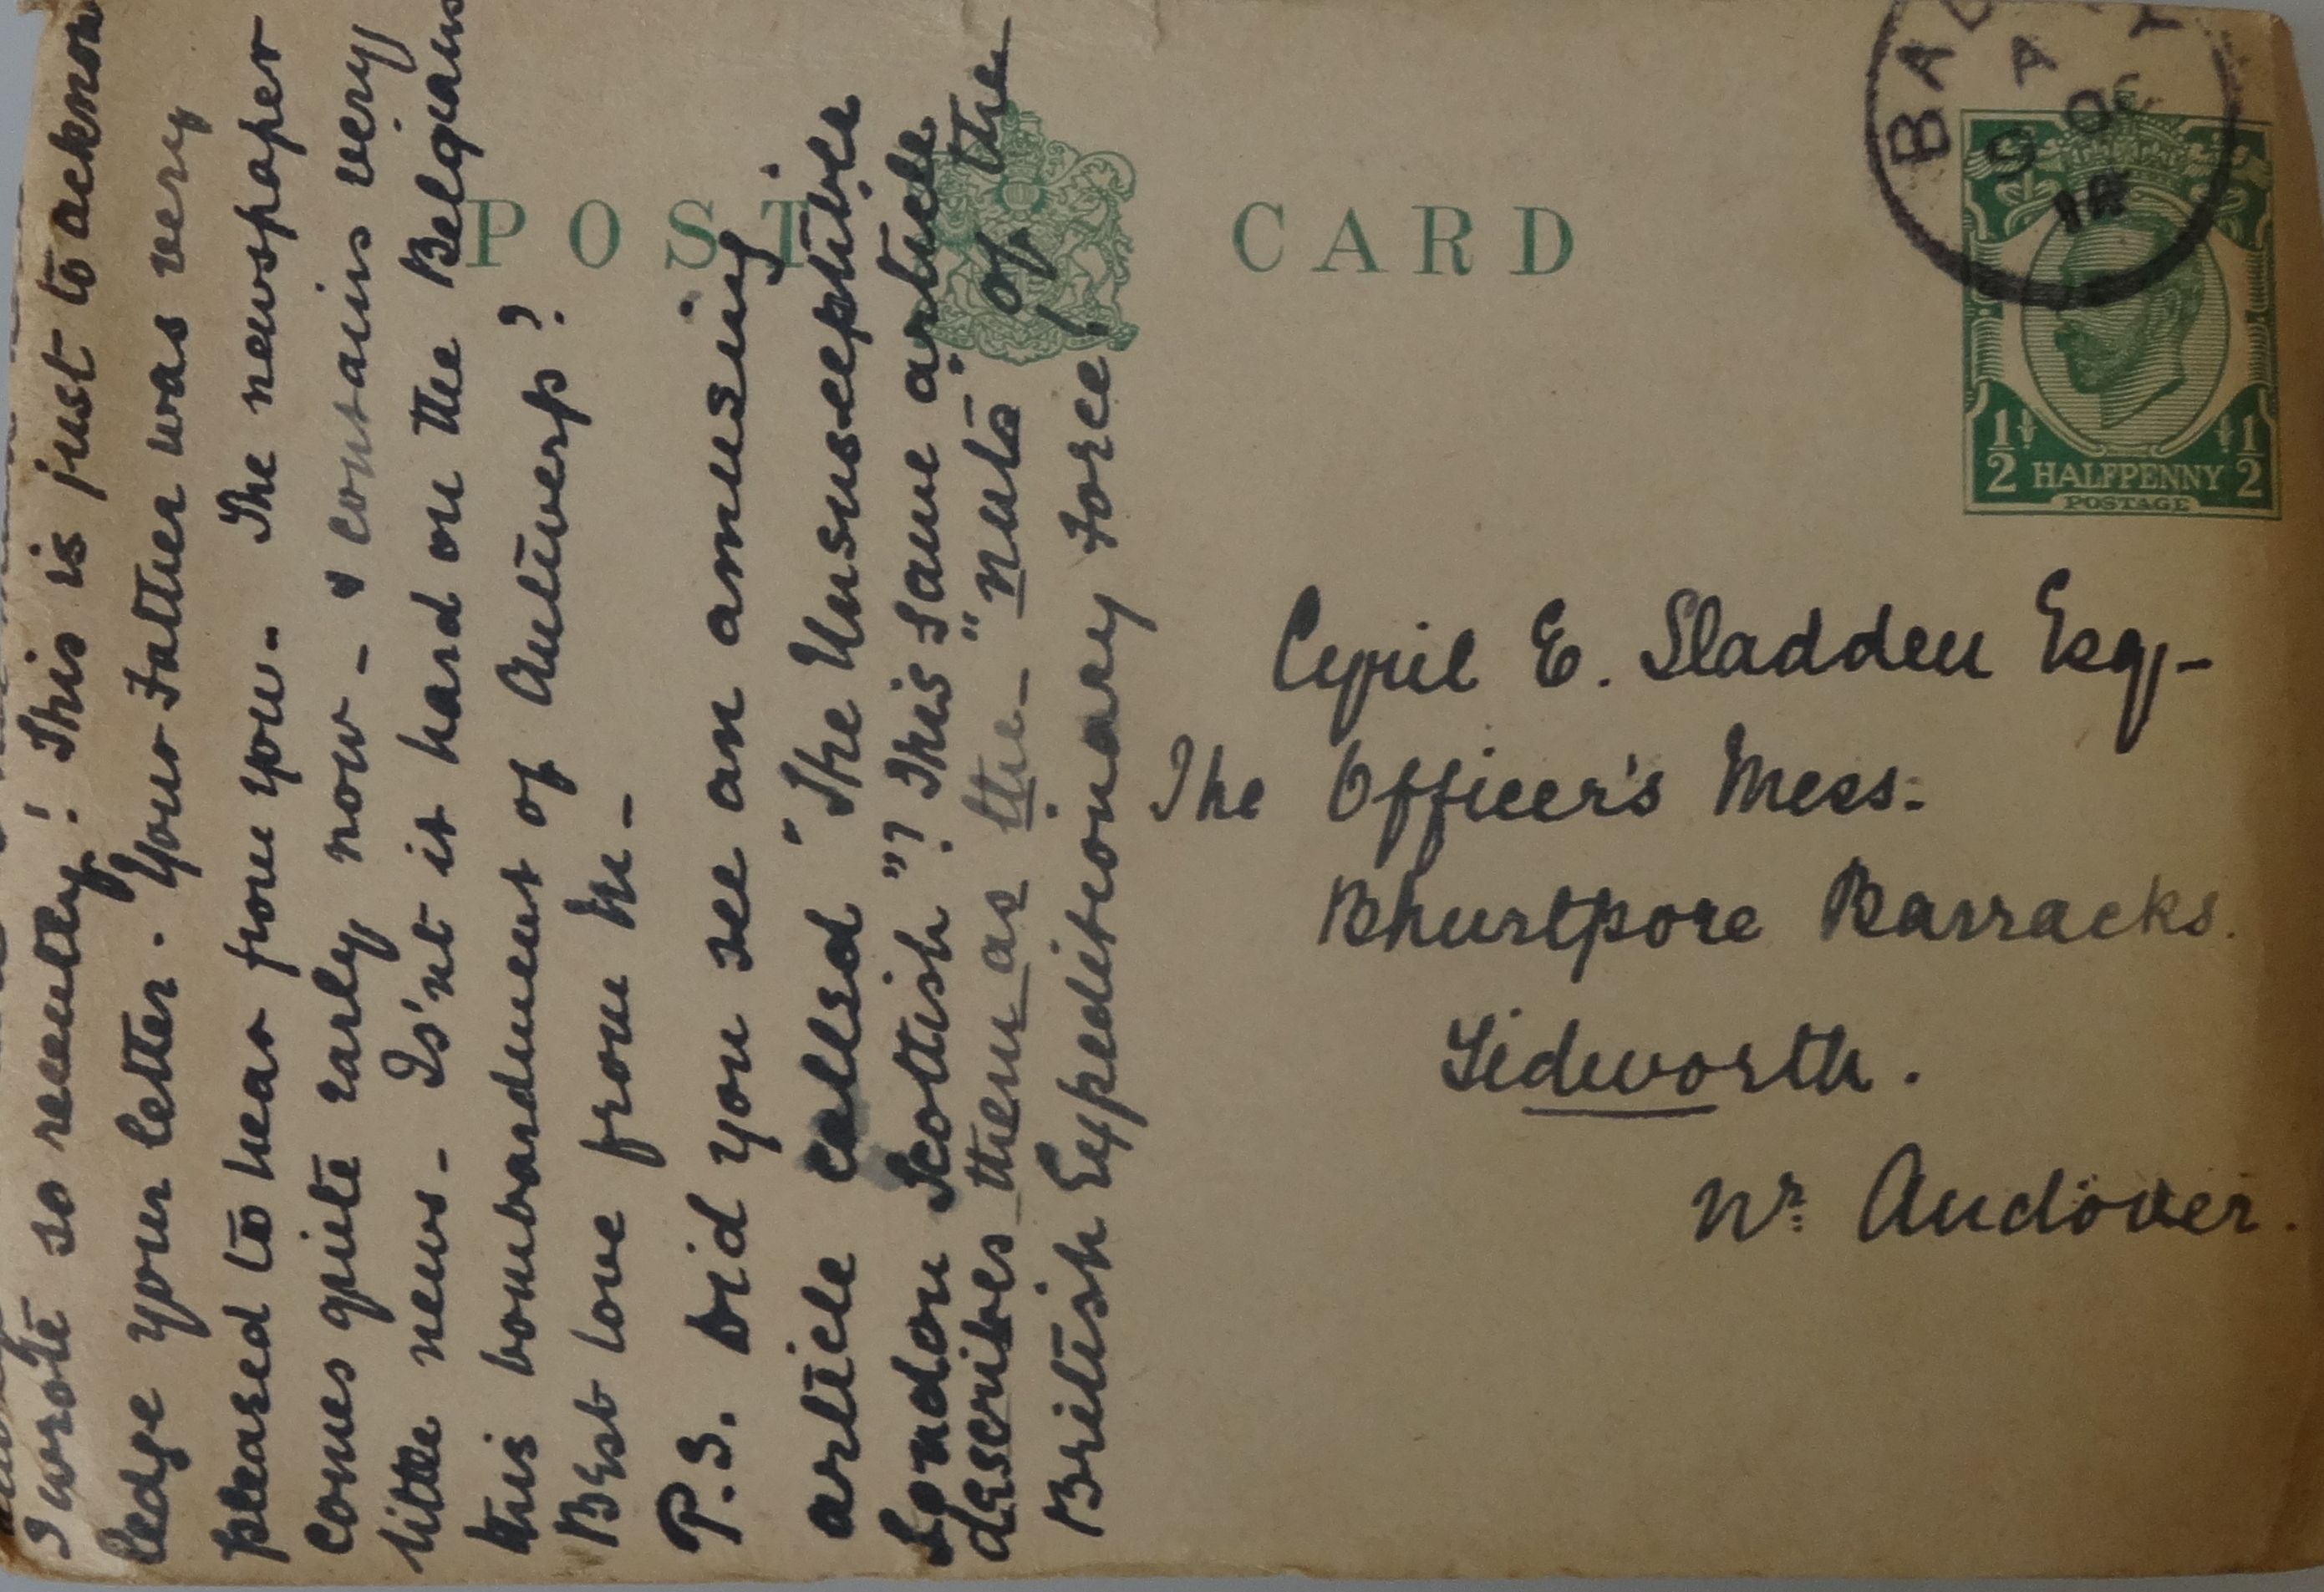 I wrote so recently! This is just to acknow
ledge your letter. Your Father was very
pleased to hear from you. The newspaper
comes quite early now - & contains very
little news - Is'nt it hard on the Belgians
this bombardment of Antwerp?
Best love from M -
P.S. Did you see an amusing
article called "The Unsusceptible
London Scottish"? This same article
describes them as the "nuts" of the
British Expeditionary Force!
POST CARD
BA
A
9 OC
½ HALFPENNY ½
POSTAGE
Cyril E. Sladden Esq-
The Officer's Mess.
Bhurtpore Barracks.
Tidworth.
Nr Andover.